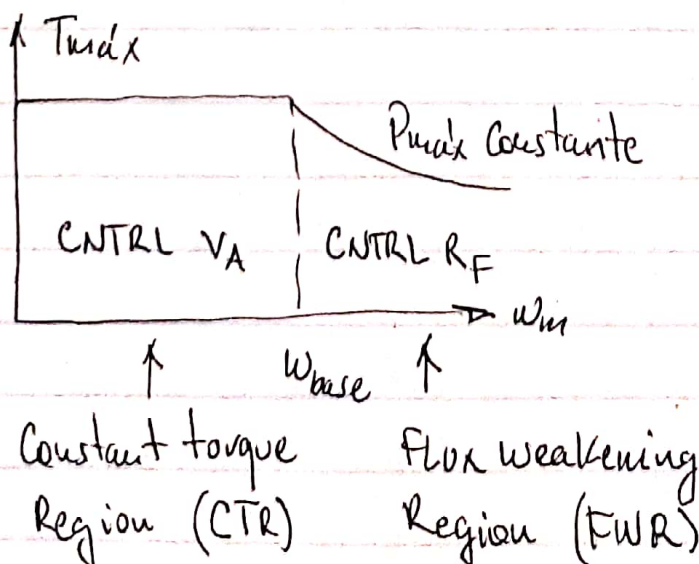 Tmáx
Pmáx Constante
CNTRL VA
CNTRL RF
ωm
ωbase
Constant torque
Region (CTR)
Flux weakening
Region (FWR)